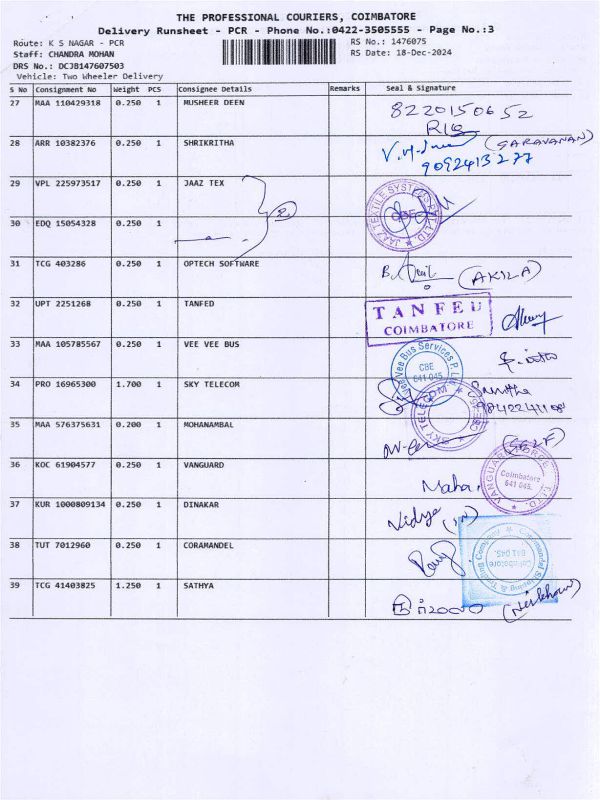 THE PROFESSIONAL COURIERS, COIMBATORE
Delivery Runsheet - PCR - Phone No.:0422-3505555 - Page No.:3
Route: K S NAGAR - PCR RS No.: 1476075
Staff: CHANDRA MOHAN RS Date: 18-Dec-2024
DRS No.: DCJB147607503
Vehicle: Two Wheeler Delivery
S No Consignment No Weight PCS Consignee Details Remarks Seal & Signature
27 MAA 110429318 0.250 1 MUSHEER DEEN 8220150652
28 ARR 10382376 0.250 1 SHRIKRITHA (SARAVANAN)
9092413277
29 VPL 225973517 0.250 1 JAAZ TEX JAAZ TEXTILE SYSTEMS PVT. LTD. CBE
30 EDQ 15054328 0.250 1 2
31 TCG 403286 0.250 1 OPTECH SOFTWARE (AKILA)
32 UPT 2251268 0.250 1 TANFED TANFED
COIMBATORE
33 MAA 105785567 0.250 1 VEE VEE BUS Vee Vee Bus Services P. Ltd. CBE 641 045.
34 PRO 16965300 1.700 1 SKY TELECOM SKY TELECOM
35 MAA 576375631 0.200 1 MOHANAMBAL (SELF)
36 KOC 61904577 0.250 1 VANGUARD Maha. VANGUARD Coimbatore 641 045.
37 KUR 1000809134 0.250 1 DINAKAR Vidya
38 TUT 7012960 0.250 1 CORAMANDEL Coimbatore 641 045.
39 TCG 41403825 1.250 1 SATHYA